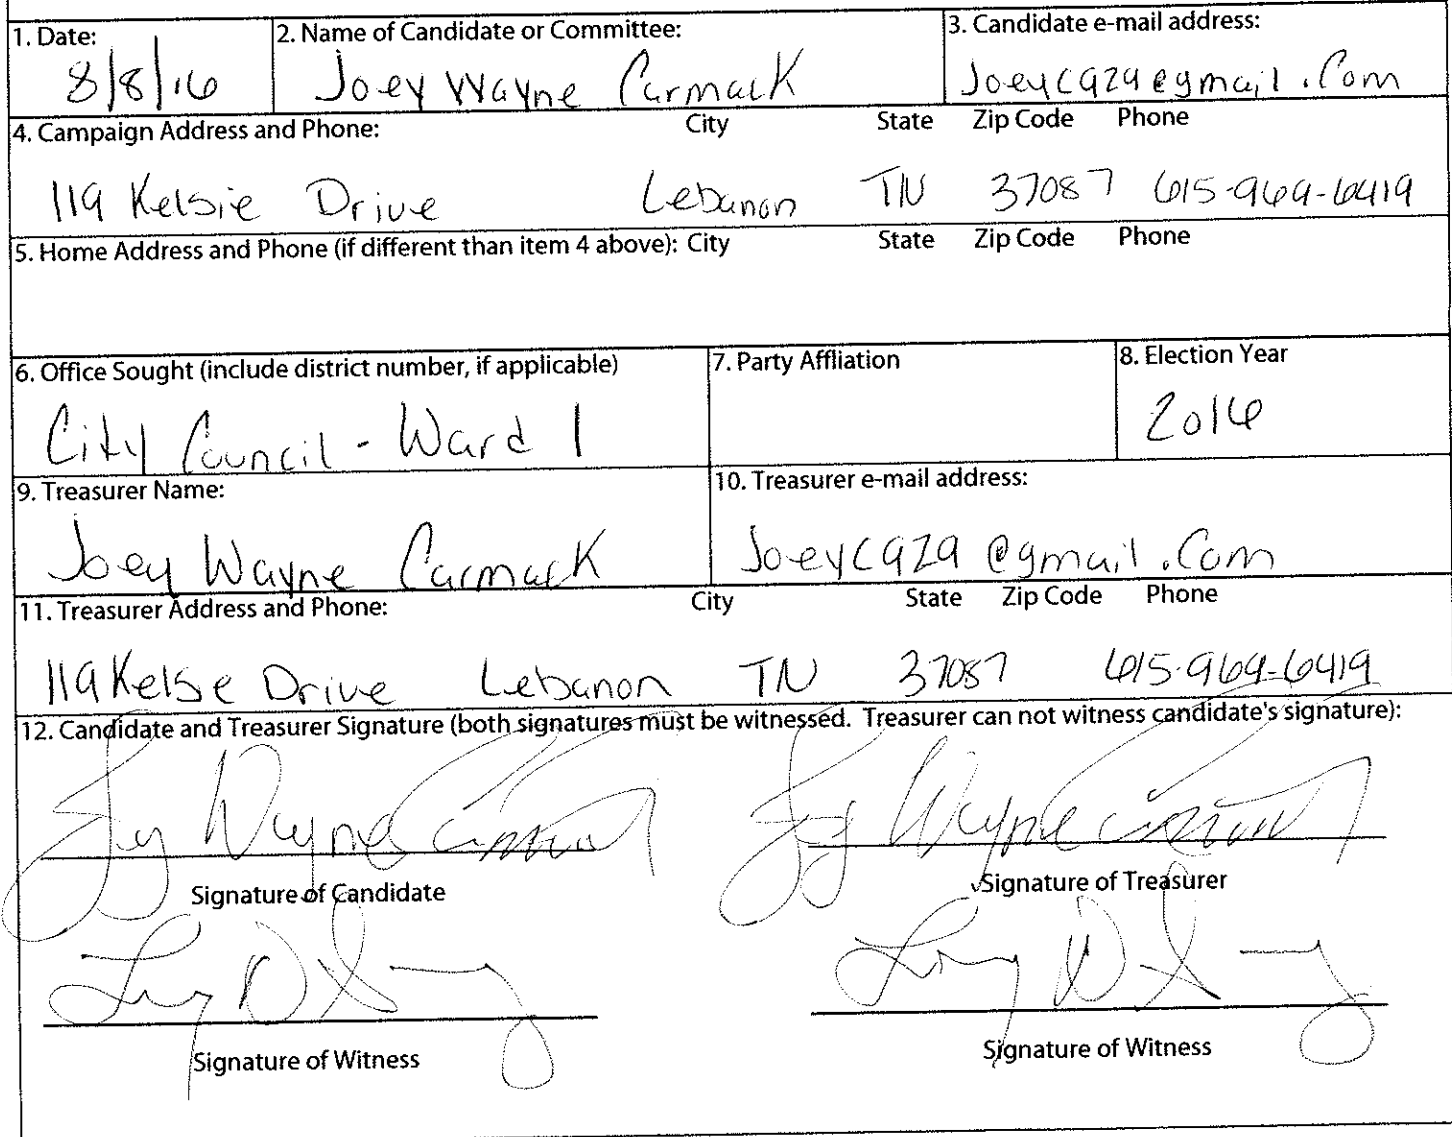 1. Date: 2. Name of Candidate or Committee: 3. Candidate e-mail address:
8/8/16 Joey Wayne Carmack Joeyc929@gmail.Com
4. Campaign Address and Phone: City State Zip Code Phone
119 Kelsie Drive Lebanon TN 37087 615-969-6419
5. Home Address and Phone (if different than item 4 above): City State Zip Code Phone
6. Office Sought (include district number, if applicable) 7. Party Affliation 8. Election Year
City Council - Ward 1 2016
9. Treasurer Name: 10. Treasurer e-mail address:
Joey Wayne Carmack Joeyc929@gmail.Com
11. Treasurer Address and Phone: City State Zip Code Phone
119 Kelsie Drive Lebanon TN 37087 615-969-6419
12. Candidate and Treasurer Signature (both signatures must be witnessed. Treasurer can not witness candidate's signature):
Joey Wayne Carmack Joey Wayne Carmack
Signature of Candidate Signature of Treasurer
Signature of Witness Signature of Witness